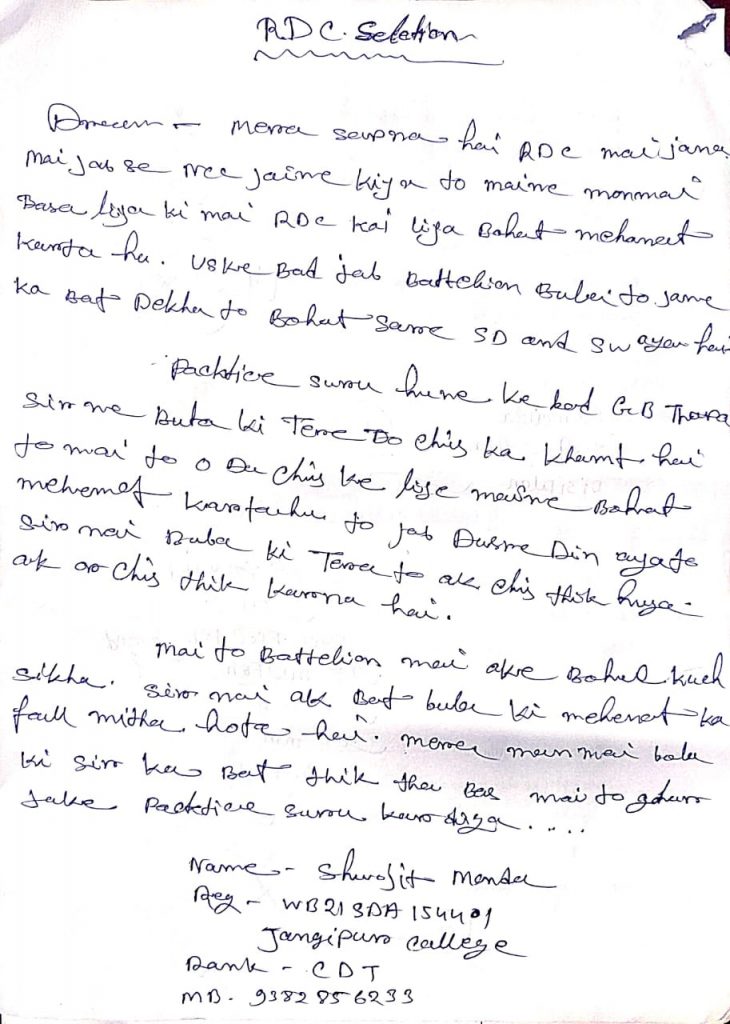 RDC. Seletion
Dreem - merra sawpna hai RDC mai jana
mai jab se ncc jaine kiya to maine monmai
Basa liya ki mai RDC kai liya Bahat mehaneet
karta hu. uske Bad jab Battelion Bulai to jane
ka Bat Dekha to Bohat sarre SD and SW ayea hai
Packtice surou hune ke bad GCB Thapa
sir ne Buta ki Terre Do chis ka khamt hai
to mai to o Du chis ke liye maine Bahat
mehemet karotahu to jab Dusre Din ayate
sir nai Buba ki Terra to ak chis thik huya.
ak or chis thik karona hai.
mai to Battelion mai akre Bohut kuch
sikha. sir nai ak Bat bula ki mehenat ka
fall mitha hota hai. merea mannmai bola
ki sir ka Bat thik tha Bas mai to ghar
jake Packtice surou karo diya.....
Name - Shurojit Mondal
Reg - WB21SDA154401
Jangipur college
Rank - CDT
MB. 9382856233